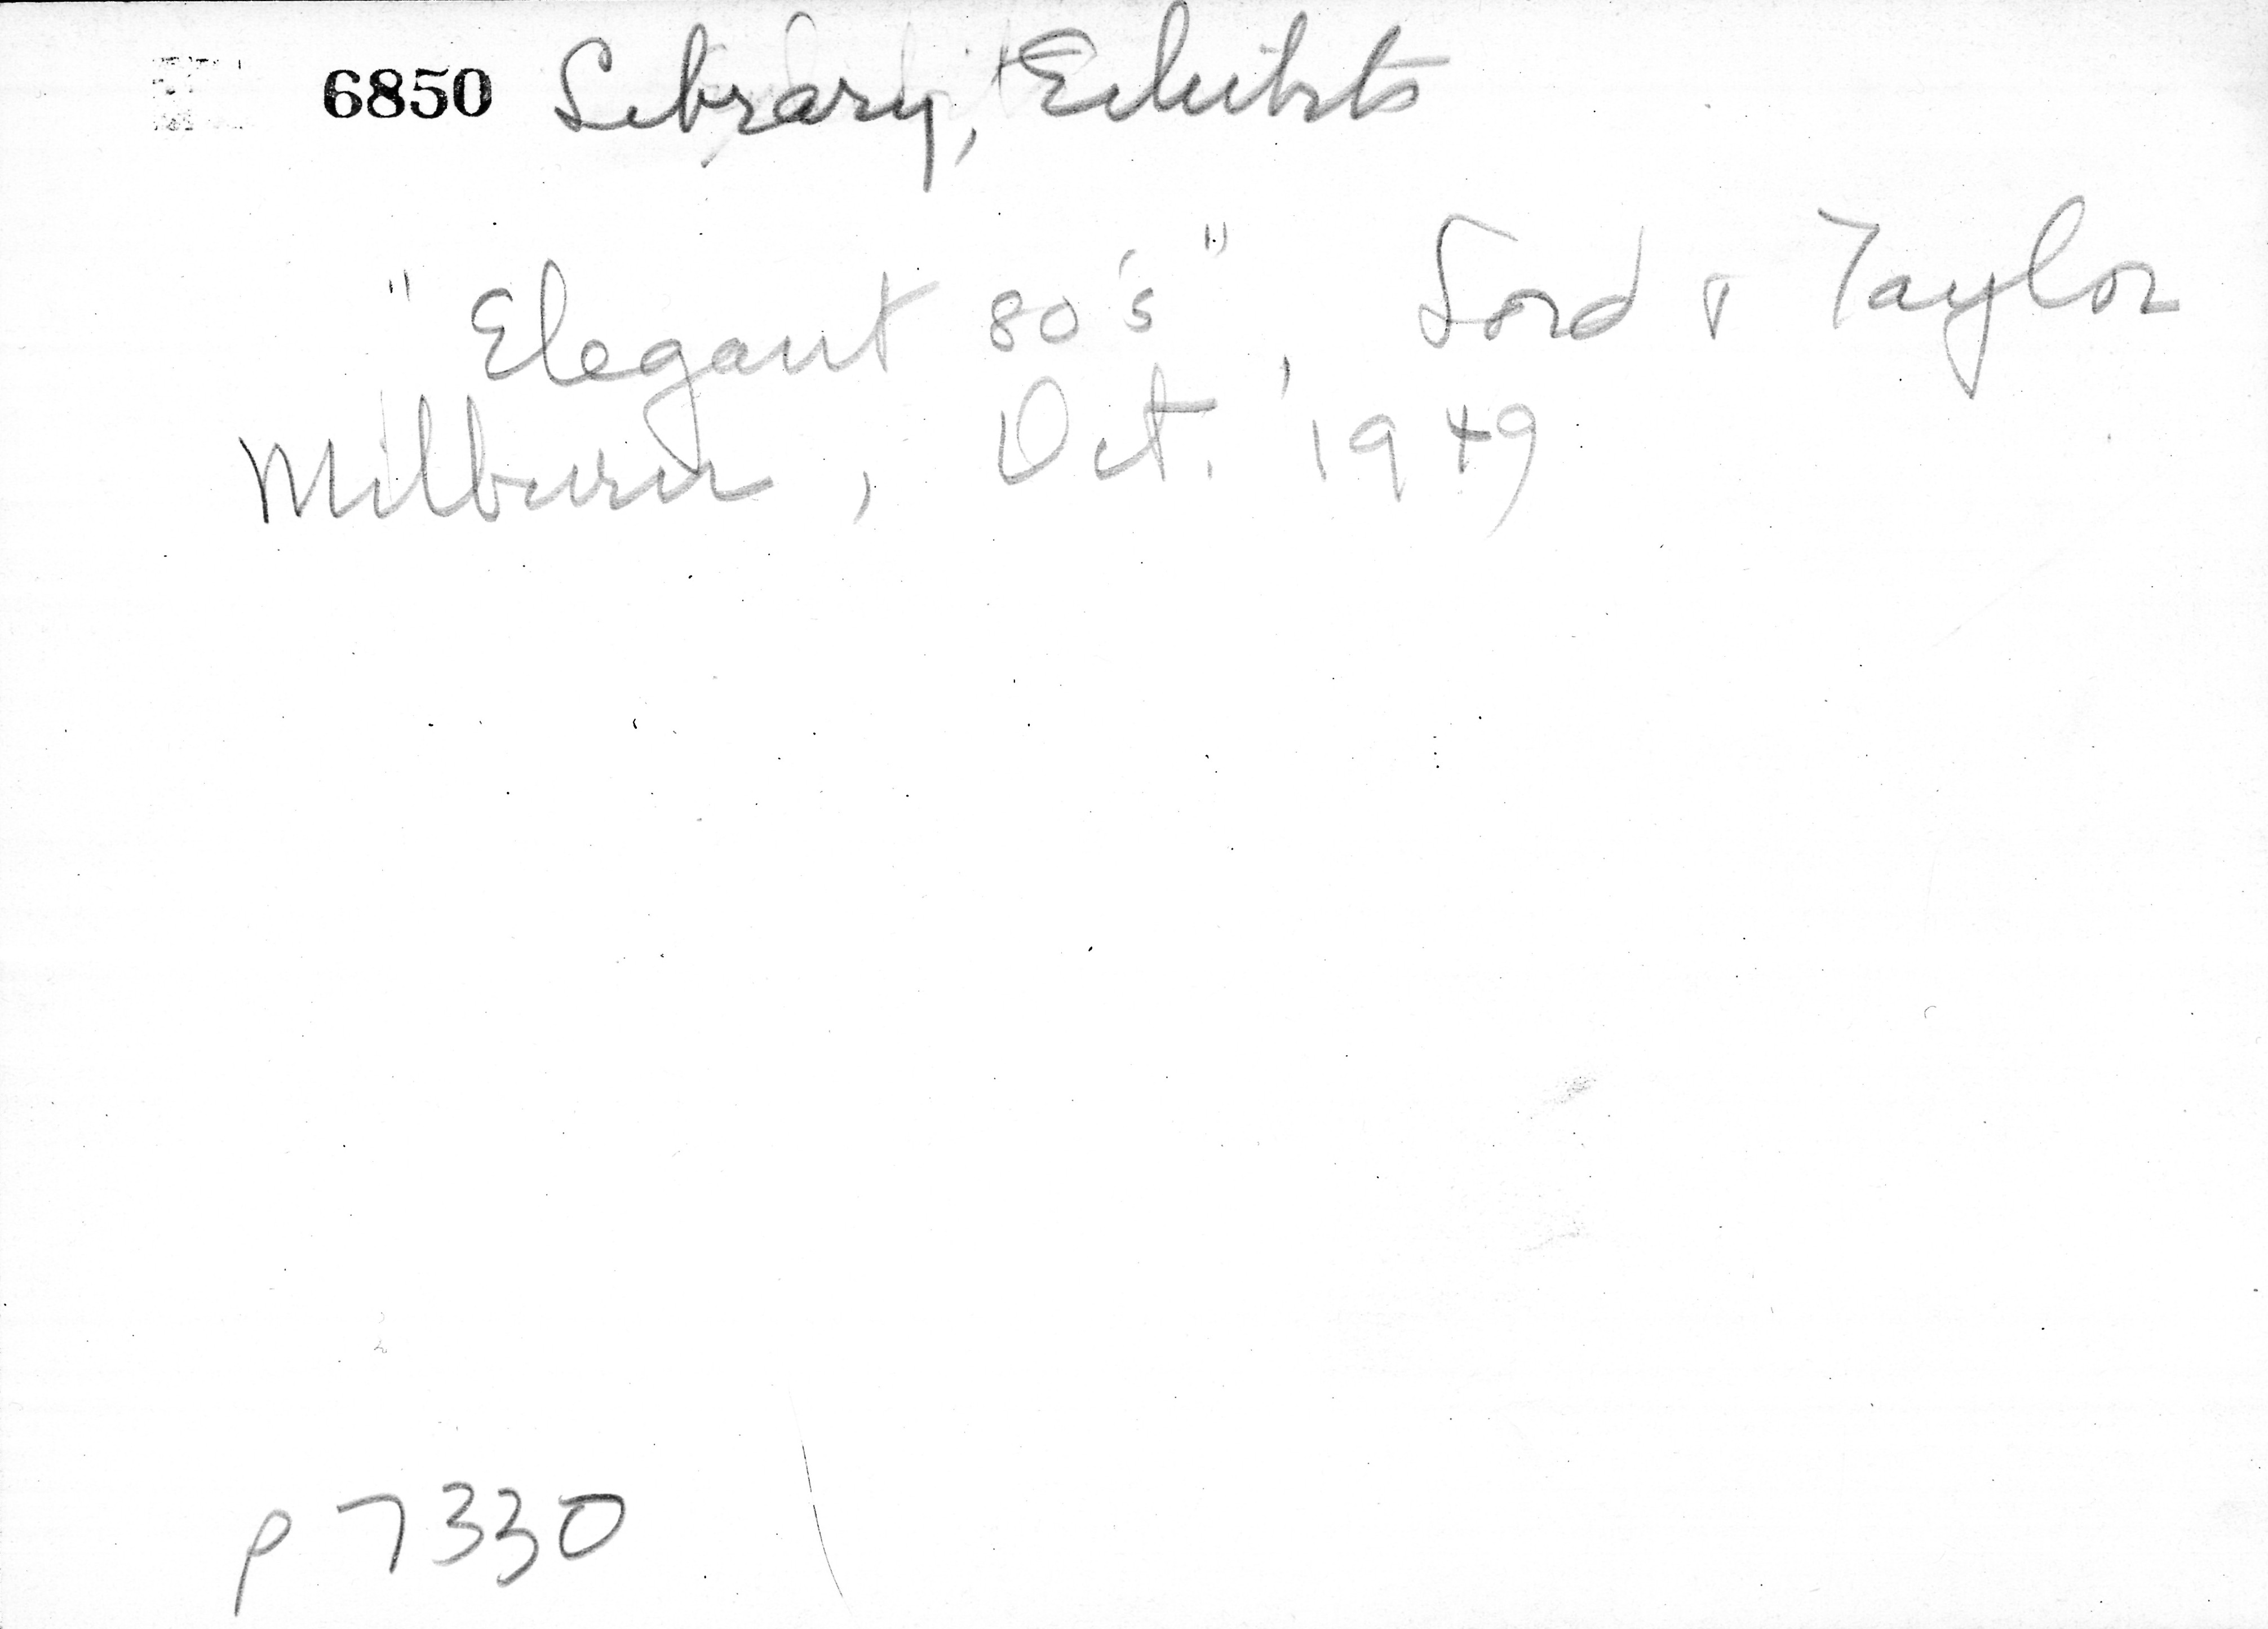 6850 Library, Exhibits
"Elegant 80's", Lord & Taylor
Milburn, Oct. 1949
p 7330